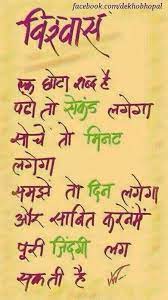 facebook.com/dekhobhopal
विश्वास
एक छोटा शब्द है
पढो तो सेकंड लगेगा
सोचें तो मिनट
लगेगा
समझे तो दिन लगेगा
और साबित करनेमें
पूरी ज़िंदगी लग
सकती है